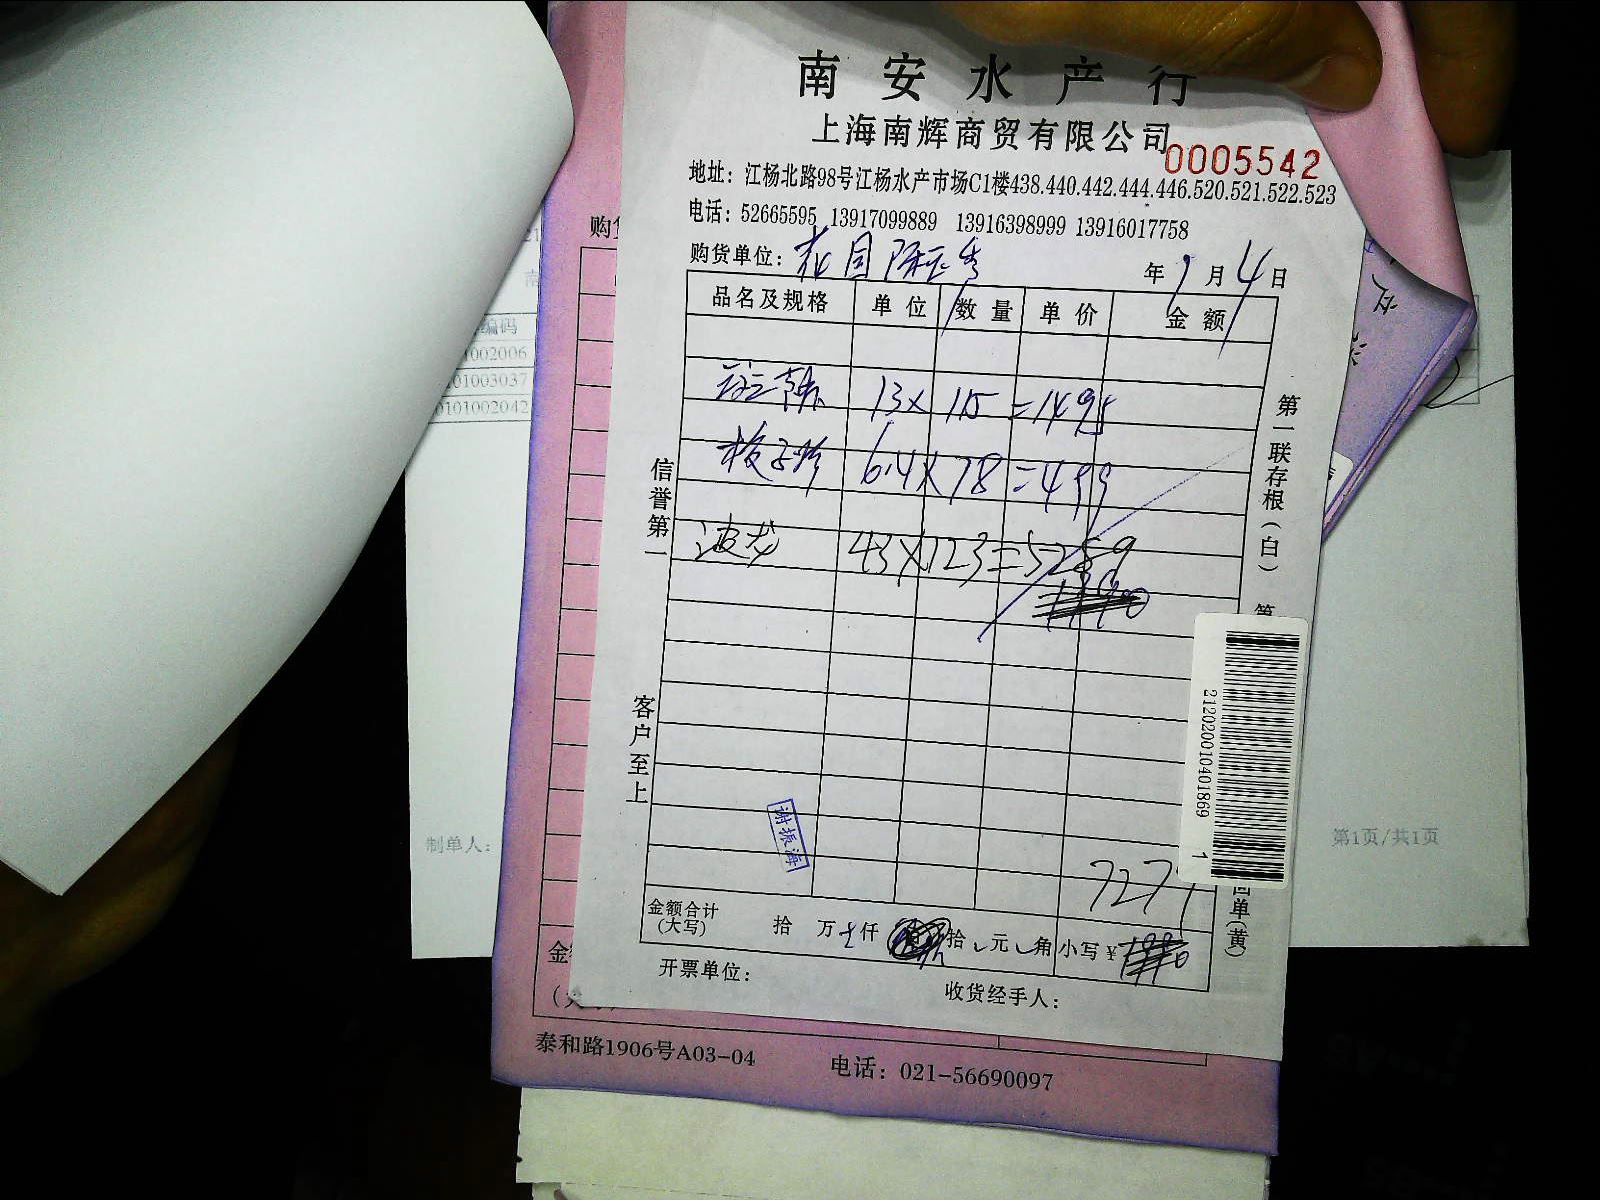 南安水产行
上海南辉商贸有限公司
0005542
地址：江杨北路98号江杨水产市场C1楼438.440.442.444.446.520.521.522.523
电话：52665595 13917099889 13916398999 13916017758
购货单位：
年 9 月 4 日
品名及规格 单位 数量 单价 金额
13 x 115 = 1495
梭子蟹 6.4 x 78 = 499
波龙 43 x 123 = 5289
信誉第一
客户至上
第一联存根(白)
第
回单(黄)
21202001040186​9
1
谢振海
727
金额合计
(大写)
拾 万 七 仟 拾 元 角 小写¥
开票单位：
收货经手人：
购
金
泰和路1906号A03-04 电话：021-56690097
编码
01002006
01003037
0101002042
制单人：
第1页/共1页